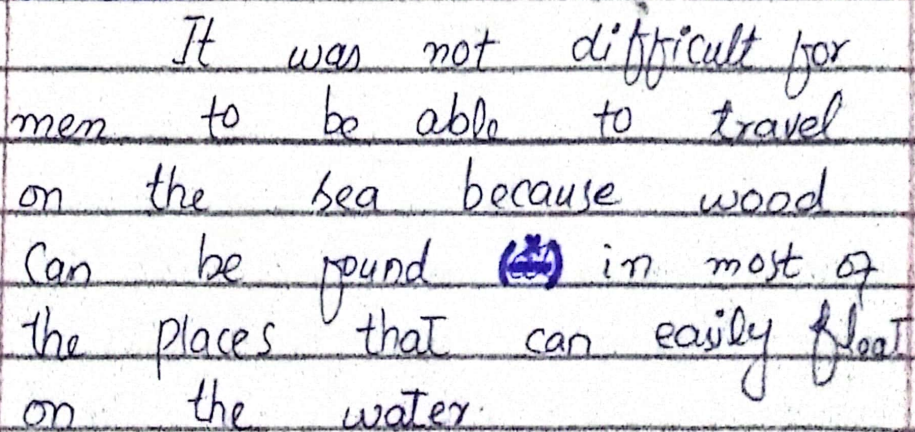 It was not difficult for
men to be able to travel
on the sea because wood
Can be found in most of
the places that can easily float
on the water.